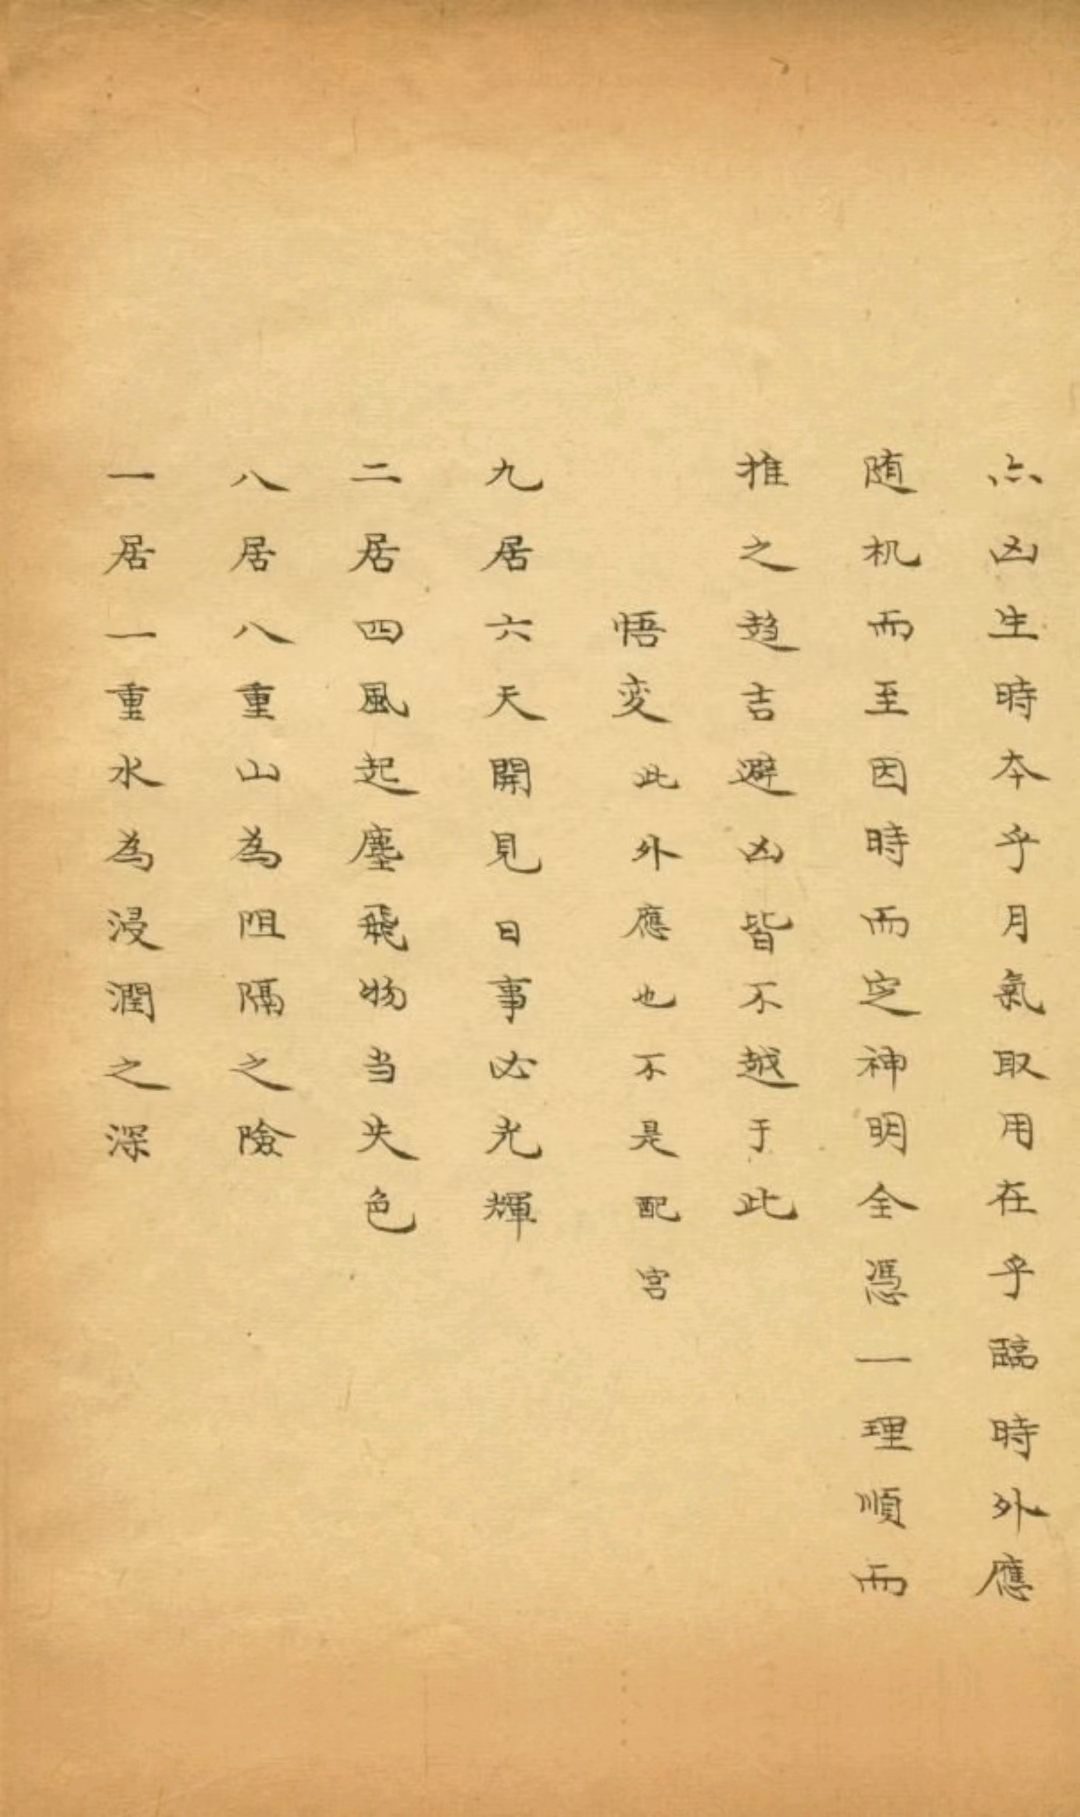 亦凶生時本乎月氣取用在乎臨時外應
随机而至因時而定神明全憑一理順而
推之趋吉避凶皆不越于此
悟変 此外應也不是配宮
九居六天開見日事必光輝
二居四風起塵飛物当失色
八居八重山為阻隔之險
一居一重水為浸潤之深